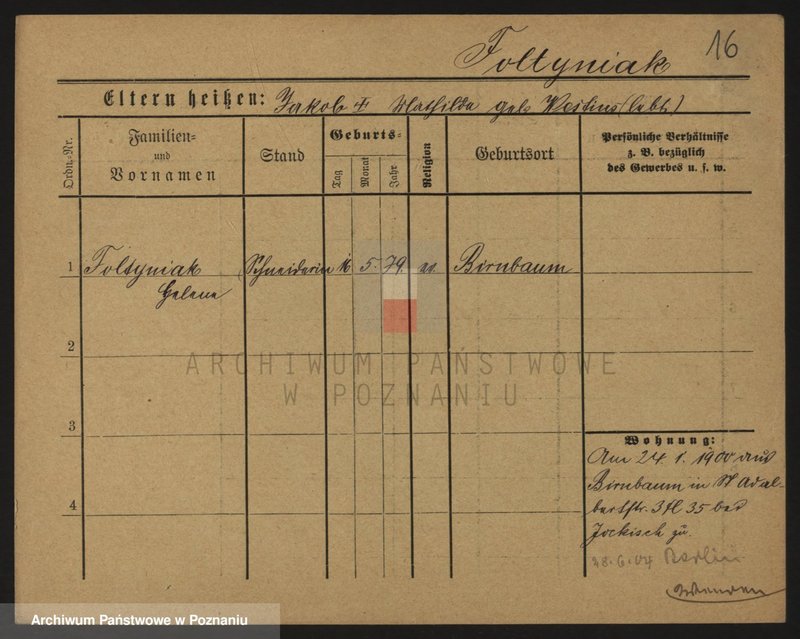 16
Foltyniak
Eltern heißen: Jakob † Mathilda geb. (lebt)
Ordn.-Nr.
Familien- und Vornamen
Stand
Geburts-
Tag Monat Jahr
Religion
Geburtsort
Persönliche Verhältnisse
z. B. bezüglich
des Gewerbes u. s. w.
1 Foltyniak Schneiderin 5. 79. ev. Birnbaum
Helene
2
ARCHIWUM PAŃSTWOWE
W POZNANIU
3
4
Wohnung:
Am 24. 1. 1900 aus
Birnbaum in St Adal-
bertstr. 3 35 bei
Jockisch zu.
28.6.04 Berlin
Archiwum Państwowe w Poznaniu